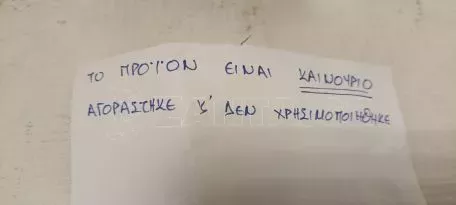 ΤΟ ΠΡΟΪΟΝ ΕΙΝΑΙ ΚΑΙΝΟΥΡΙΟ
ΑΓΟΡΑΣΤΗΚΕ Κ' ΔΕΝ ΧΡΗΣΙΜΟΠΟΙΗΘΗΚΕ